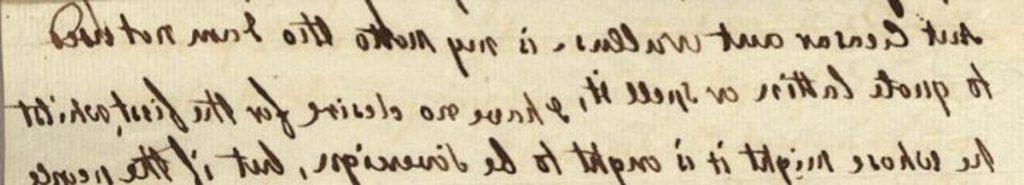 Aut Ceasar aut nullus is my Motto tho I am not used
to quote lattin or spell it, I have no desire for the first, whilst
he whose right it is ought to be Sovereign, but if the people